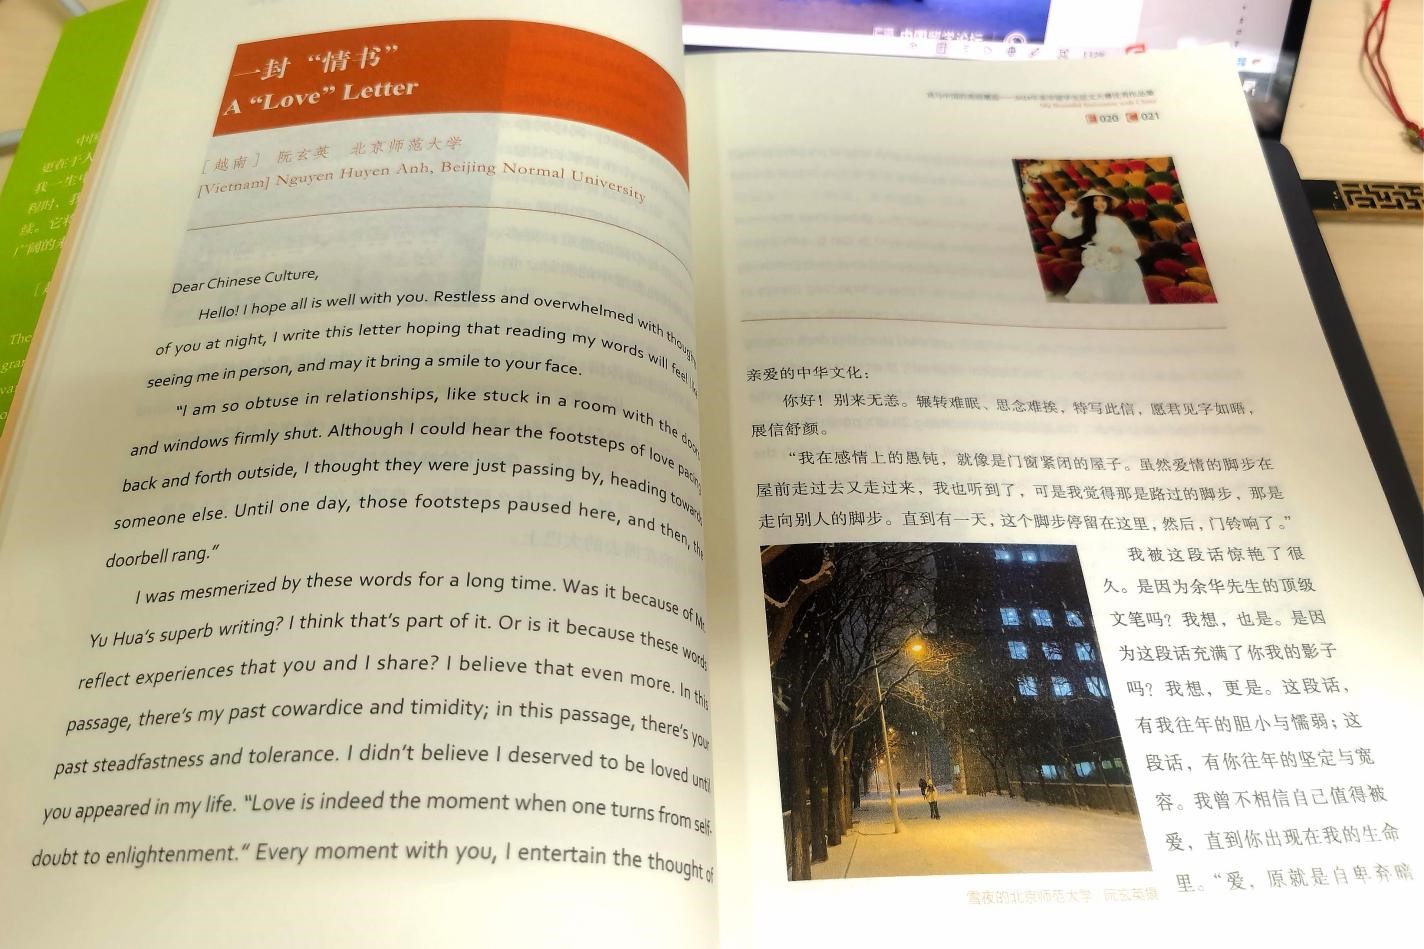 一封“情书”
A “Love” Letter
［越南］ 阮玄英 北京师范大学
[Vietnam] Nguyen Huyen Anh, Beijing Normal University
Dear Chinese Culture,
Hello! I hope all is well with you. Restless and overwhelmed with
of you at night, I write this letter hoping that reading my words will feel
seeing me in person, and may it bring a smile to your face.
“I am so obtuse in relationships, like stuck in a room with the door
and windows firmly shut. Although I could hear the footsteps of love pacing
back and forth outside, I thought they were just passing by, heading towards
someone else. Until one day, those footsteps paused here, and then, the
doorbell rang.”
I was mesmerized by these words for a long time. Was it because of Mr.
Yu Hua’s superb writing? I think that’s part of it. Or is it because these words
reflect experiences that you and I share? I believe that even more. In this
passage, there’s my past cowardice and timidity; in this passage, there’s your
past steadfastness and tolerance. I didn’t believe I deserved to be loved until
you appeared in my life. “Love is indeed the moment when one turns from self-
doubt to enlightenment.“ Every moment with you, I entertain the thought of
020 021
亲爱的中华文化：
你好！别来无恙。辗转难眠、思念难挨，特写此信，愿君见字如晤，
展信舒颜。
“我在感情上的愚钝，就像是门窗紧闭的屋子。虽然爱情的脚步在
屋前走过去又走过来，我也听到了，可是我觉得那是路过的脚步，那是
走向别人的脚步。直到有一天，这个脚步停留在这里，然后，门铃响了。”
我被这段话惊艳了很
久。是因为余华先生的顶级
文笔吗？我想，也是。是因
为这段话充满了你我的影子
吗？我想，更是。这段话，
有我往年的胆小与懦弱；这
段话，有你往年的坚定与宽
容。我曾不相信自己值得被
爱，直到你出现在我的生命
里。“爱，原就是自卑弃暗
雪夜的北京师范大学 / 阮玄英摄
中国
更在于人
我一生中
程时，我
续。它将